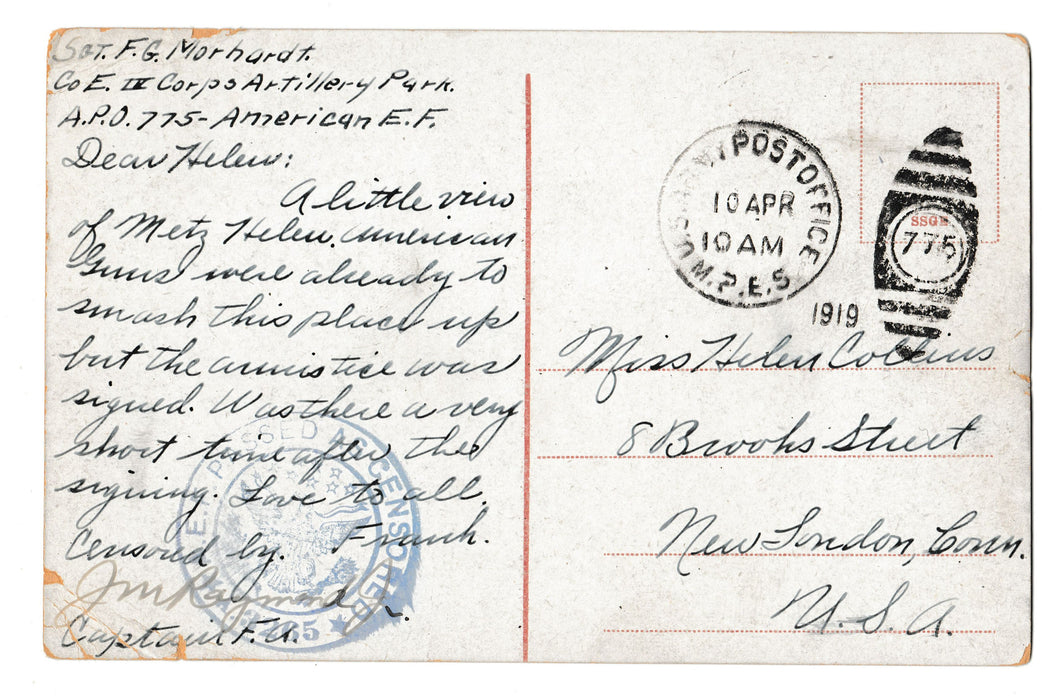 Sgt. F.G. Morhardt.
Co E. IV Corps Artillery Park.
A.P.O. 775 - American E.F.
Dear Helen:
A little view
of Metz Helen. American
Guns were already to
smash this place up
but the armistice was
signed. Was there a very
short time after the
signing. Love to all.
Frank.
Censored by.
Captain F.A.
A.E.F. PASSED AS CENSORED
U.S. ARMY POST OFFICE
M.P.E.S.
10 APR
10 AM
1919
775
Miss Helen Collins
8 Brooks Street
New London, Conn.
U.S.A.